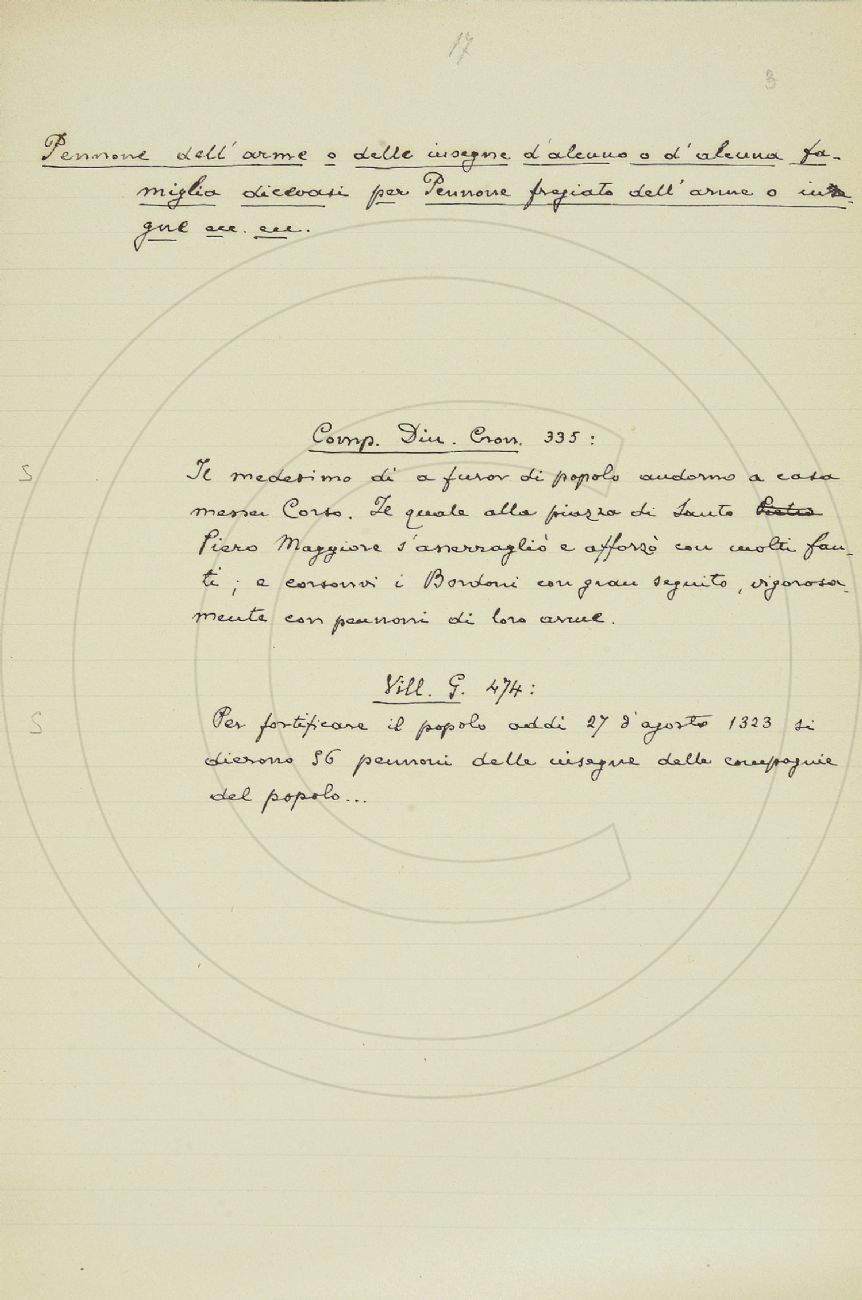 17
3
Pennone dell'arme o delle insegne d'alcuno o d'alcuna fa-
miglia dicevasi per Pennone fregiato dell'arme o inse-
gne ecc. ecc.
Comp. Din. Cron. 335:
S
Il medesimo dì a furor di popolo andorno a casa
messer Corso. Il quale alla piazza di Santo Pietro
Piero Maggiore s'asserragliò e afforzò con molti fan-
ti; e corsonvi i Bordoni con gran seguito, vigorosa-
mente con pennoni di loro arme.
Vill. G. 474:
S
Per fortificare il popolo addì 27 d'agosto 1323 si
dierono 56 pennoni delle insegne delle compagnie
del popolo...